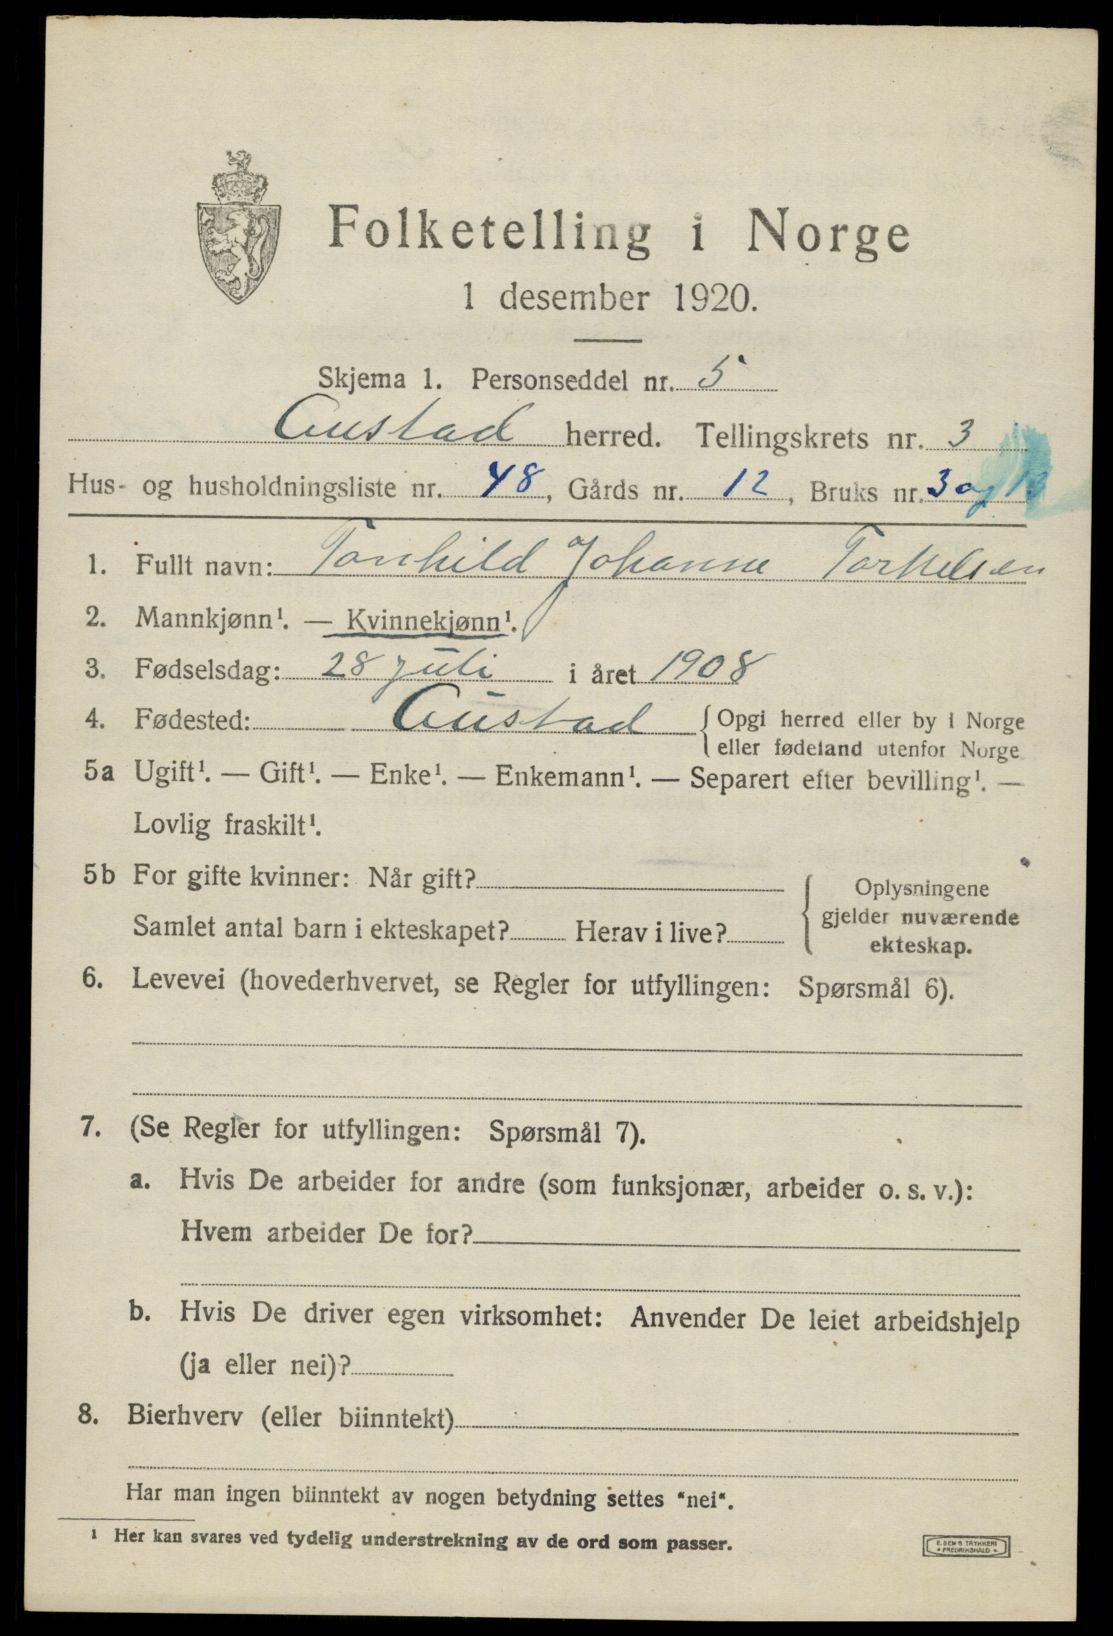 Folketelling i Norge
1 desember 1920.
Skjema 1. Personseddel nr. 5
Austad herred. Tellingskrets nr. 3
Hus- og husholdningsliste nr. 48, Gårds nr. 12, Bruks nr. 3 og 13
1. Fullt navn: Tonhild Johanne Torkelsen
2. Mannkjønn¹. — Kvinnekjønn¹.
3. Fødselsdag: 28 juli i året 1908
4. Fødested: Austad {Opgi herred eller by i Norge
eller fødeland utenfor Norge
5a Ugift¹. — Gift¹. — Enke¹. — Enkemann¹. — Separert efter bevilling¹. —
Lovlig fraskilt¹.
5b For gifte kvinner: Når gift?
Samlet antal barn i ekteskapet? Herav i live?
Oplysningene
gjelder nuværende
ekteskap.
6. Levevei (hovederhvervet, se Regler for utfyllingen: Spørsmål 6).
7. (Se Regler for utfyllingen: Spørsmål 7).
a. Hvis De arbeider for andre (som funksjonær, arbeider o. s. v.):
Hvem arbeider De for?
b. Hvis De driver egen virksomhet: Anvender De leiet arbeidshjelp
(ja eller nei)?
8. Bierhverv (eller biinntekt)
Har man ingen biinntekt av nogen betydning settes "nei".
¹ Her kan svares ved tydelig understrekning av de ord som passer.
E. SEM'S TRYKKERI
• FREDRIKSHALD •